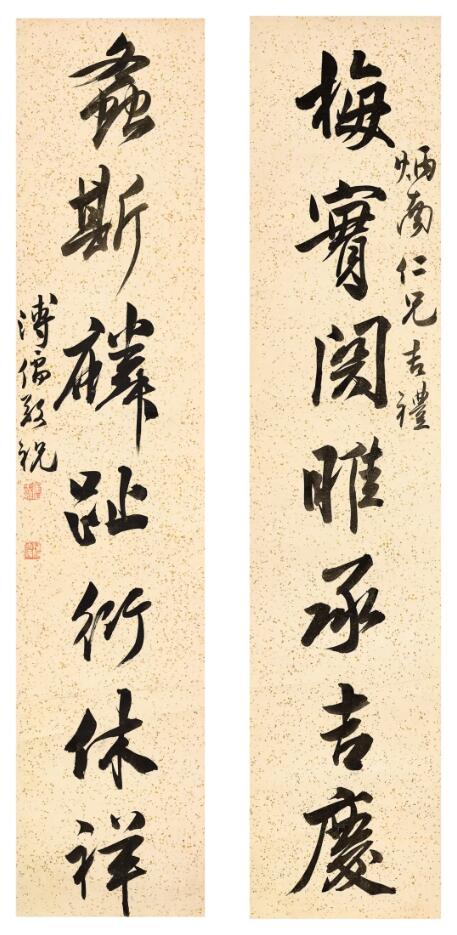 炳南仁兄吉禮
梅實関雎承吉慶
螽斯麟趾衍休祥
溥儒敬祝